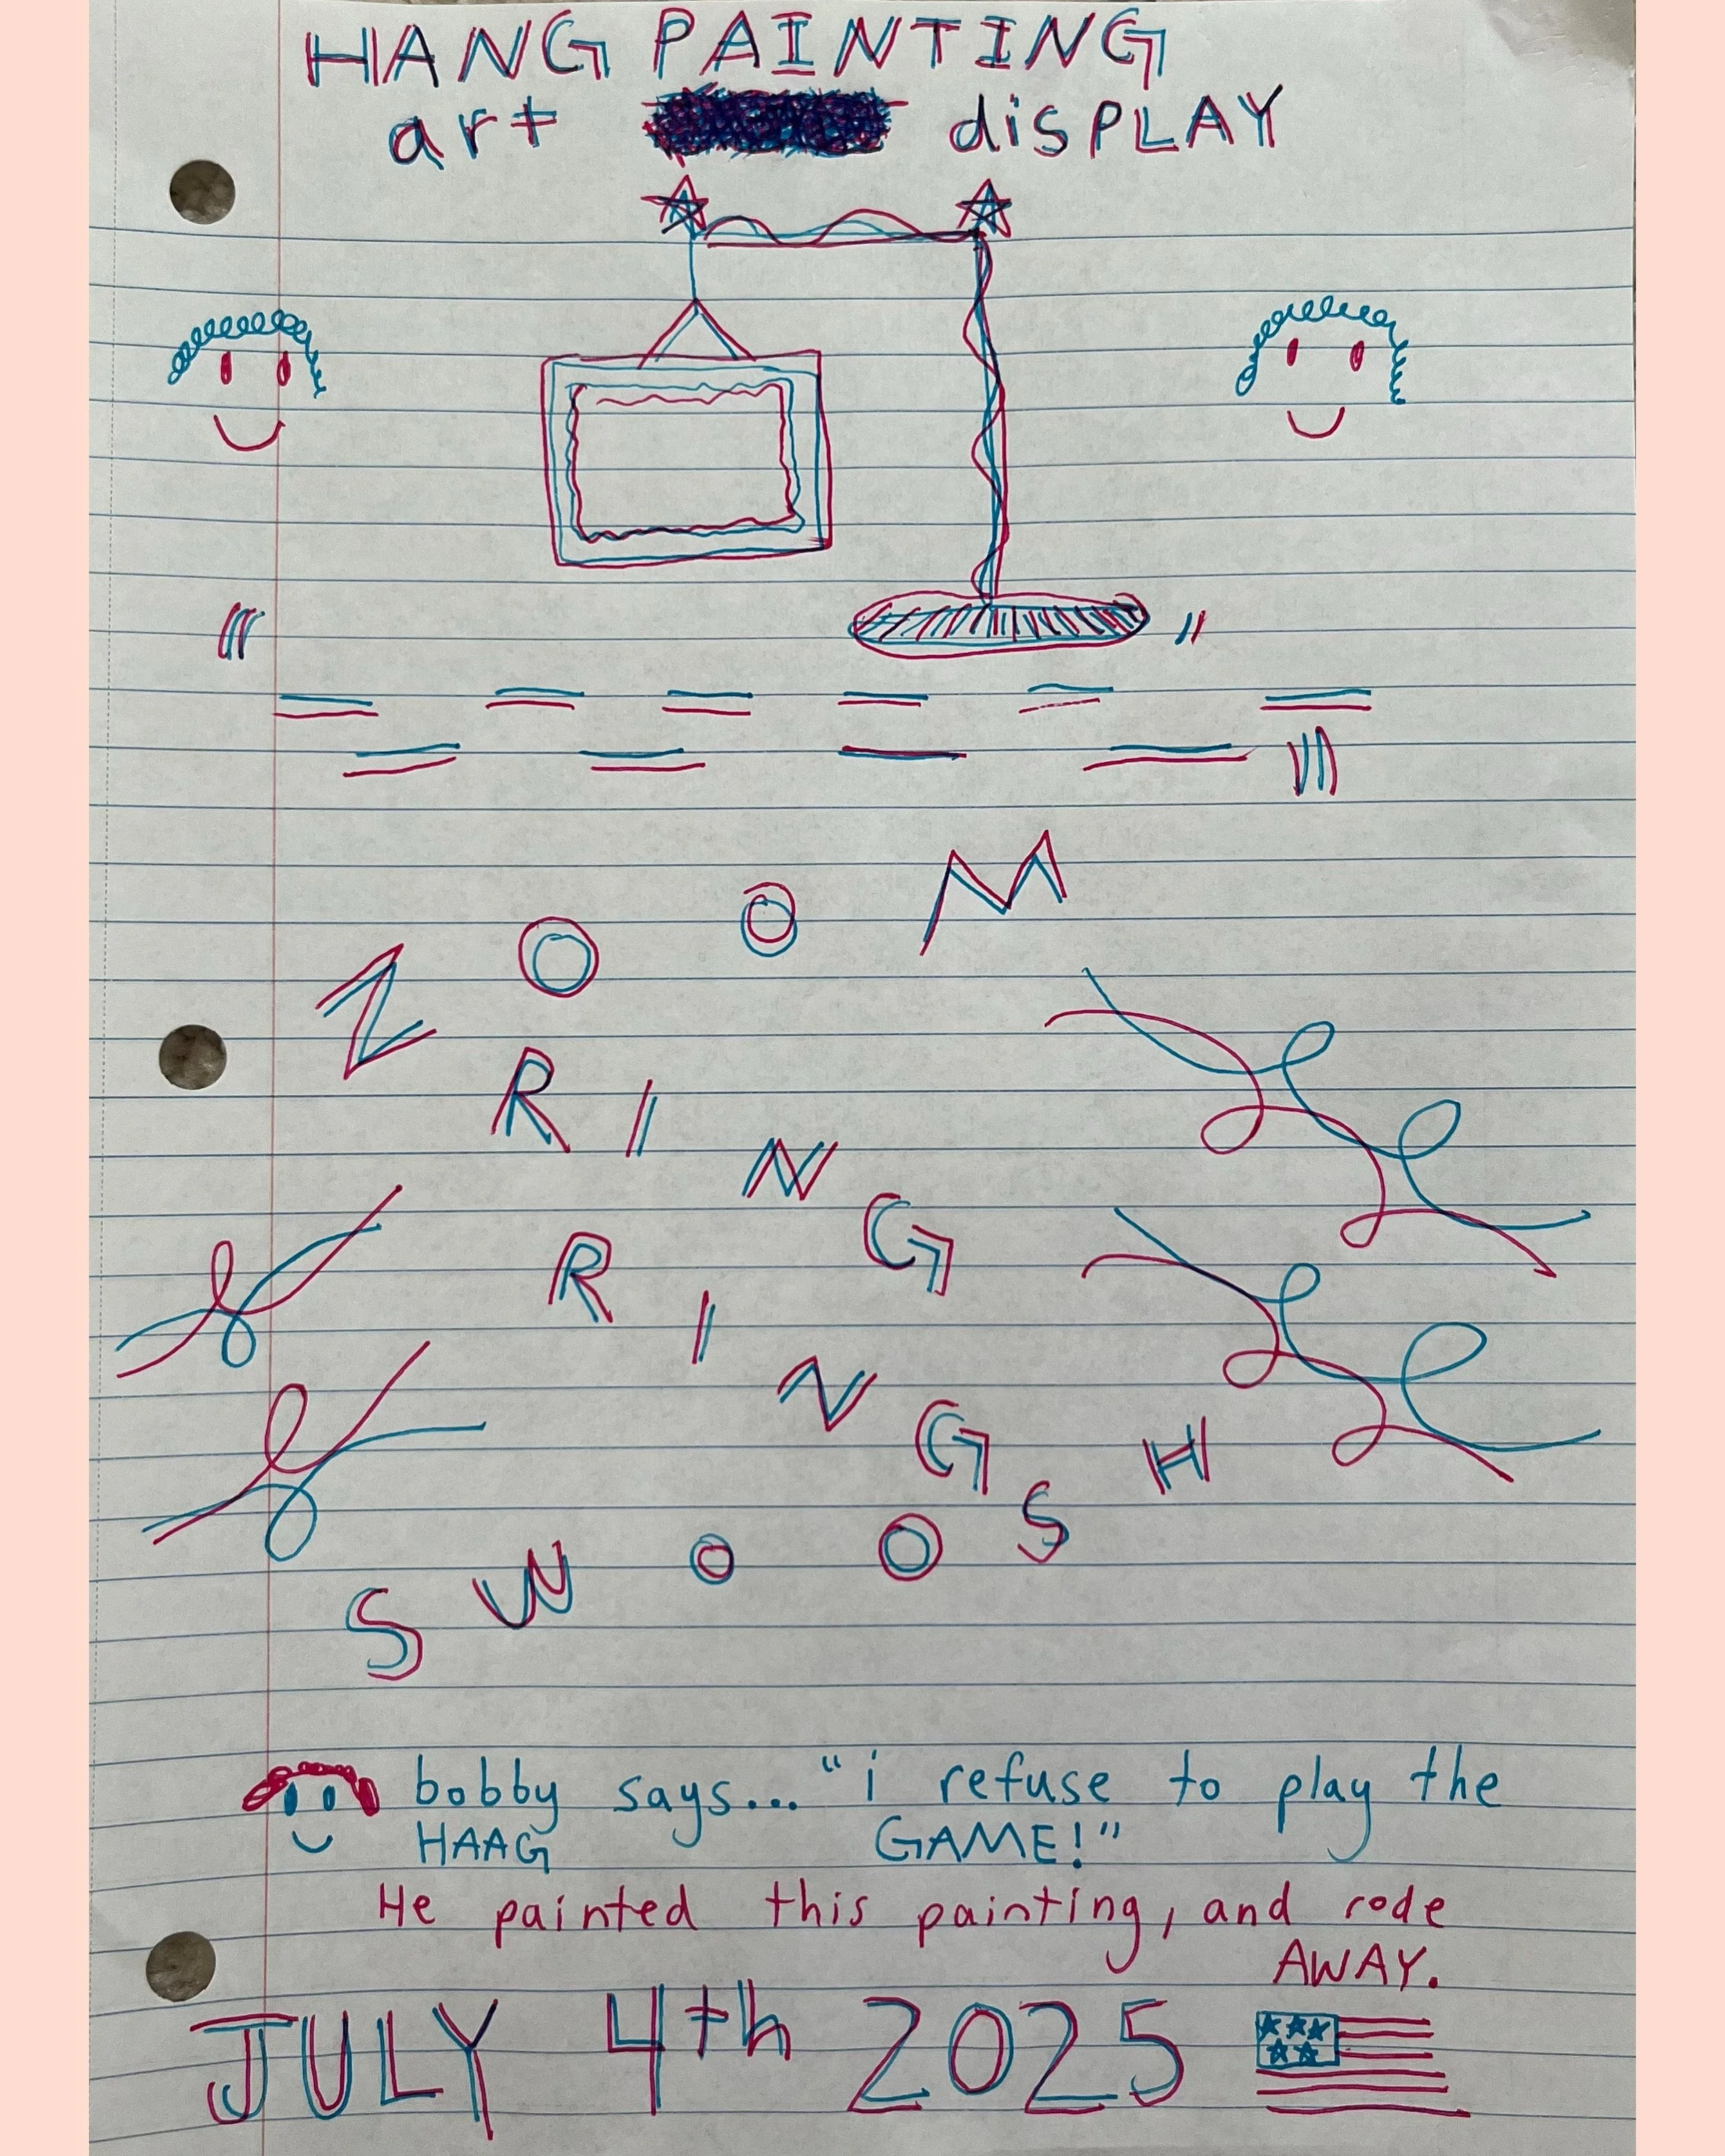 HANG PAINTING
art display
ZOOM
RING
RING
SWOOSH
bobby says... "i refuse to play the
HAAG GAME!"
He painted this painting, and rode
AWAY.
JULY 4th 2025